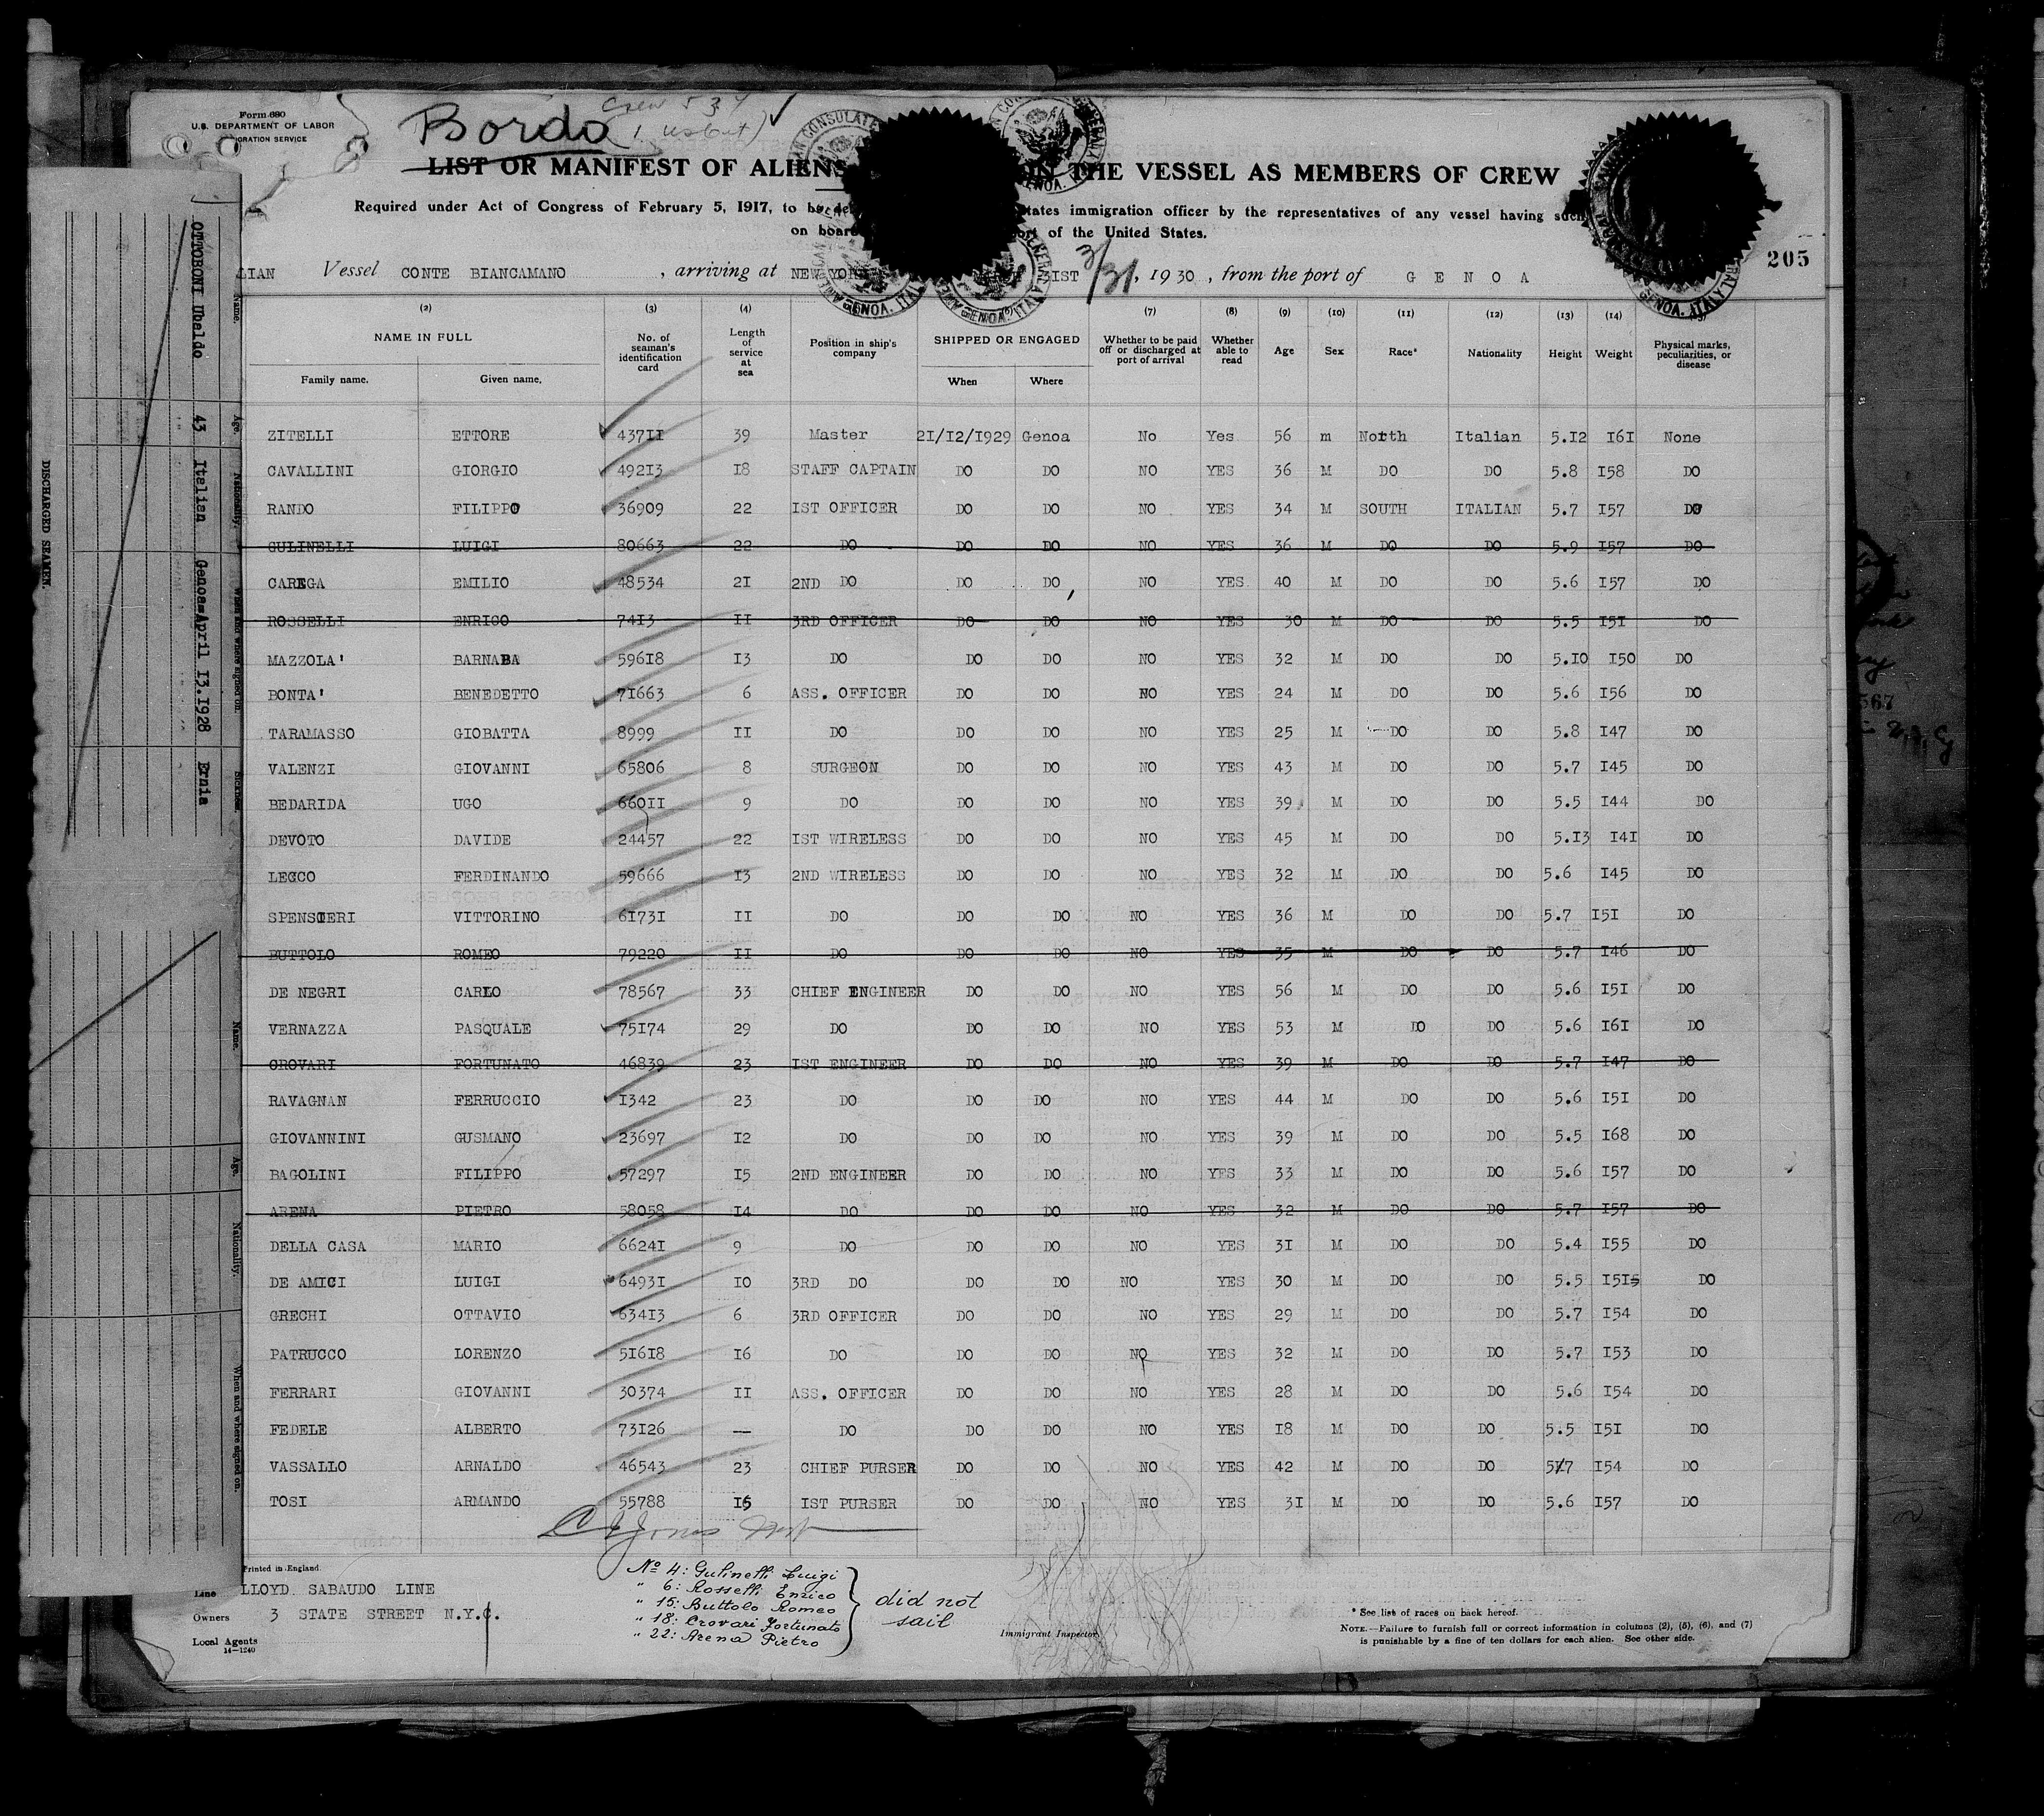 Crew 534
Bordo
Form 680
U.S. DEPARTMENT OF LABOR
IGRATION SERVICE
LIST OR MANIFEST OF ALIENS IN THE VESSEL AS MEMBERS OF CREW
Required under Act of Congress of February 5, 1917, to be tates immigration officer by the representatives of any vessel having such
on board ort of the United States.
205
LIAN Vessel CONTE BIANCAMANO , arriving at NEW YORK IST 3/31, 1930 , from the port of GENOA
(2) (3) (4) (7) (8) (9) (10) (11) (12) (13) (14)
NAME IN FULL No. of seaman's identification card Length of service at sea Position in ship's company SHIPPED OR ENGAGED Whether to be paid off or discharged at port of arrival Whether able to read Age Sex Race* Nationality Height Weight Physical marks, peculiarities, or disease
Family name. Given name. When Where
ZITELLI ETTORE 437II 39 Master 2I/I2/I929 Genoa No Yes 56 m North Italian 5.I2 I6I None
CAVALLINI GIORGIO 492I3 I8 STAFF CAPTAIN DO DO NO YES 36 M DO DO 5.8 I58 DO
RANDO FILIPPO 36909 22 IST OFFICER DO DO NO YES 34 M SOUTH ITALIAN 5.7 I57 DO
GULINELLI LUIGI 80663 22 DO DO DO NO YES 36 M DO DO 5.9 I57 DO
CAREGA EMILIO 48534 2I 2ND DO DO DO NO YES 40 M DO DO 5.6 I57 DO
ROSSELLI ENRICO 74I3 II 3RD OFFICER DO DO NO YES 30 M DO DO 5.5 I5I DO
MAZZOLA' BARNABA 596I8 I3 DO DO DO NO YES 32 M DO DO 5.I0 I50 DO
BONTA' BENEDETTO 7I663 6 ASS. OFFICER DO DO NO YES 24 M DO DO 5.6 I56 DO
TARAMASSO GIOBATTA 8999 II DO DO DO NO YES 25 M DO DO 5.8 I47 DO
VALENZI GIOVANNI 65806 8 SURGEON DO DO NO YES 43 M DO DO 5.7 I45 DO
BEDARIDA UGO 660II 9 DO DO DO NO YES 39 M DO DO 5.5 I44 DO
DEVOTO DAVIDE 24457 22 IST WIRELESS DO DO NO YES 45 M DO DO 5.I3 I4I DO
LECCO FERDINANDO 59666 I3 2ND WIRELESS DO DO NO YES 32 M DO DO 5.6 I45 DO
SPENSIERI VITTORINO 6I73I II DO DO DO NO YES 36 M DO DO 5.7 I5I DO
BUTTOLO ROMEO 79220 II DO DO DO NO YES 35 M DO DO 5.7 I46 DO
DE NEGRI CARLO 78567 33 CHIEF ENGINEER DO DO NO YES 56 M DO DO 5.6 I5I DO
VERNAZZA PASQUALE 75I74 29 DO DO DO NO YES 53 M DO DO 5.6 I6I DO
CROVARI FORTUNATO 46839 23 IST ENGINEER DO DO NO YES 39 M DO DO 5.7 I47 DO
RAVAGNAN FERRUCCIO I342 23 DO DO DO NO YES 44 M DO DO 5.6 I5I DO
GIOVANNINI GUSMANO 23697 I2 DO DO DO NO YES 39 M DO DO 5.5 I68 DO
BAGOLINI FILIPPO 57297 I5 2ND ENGINEER DO DO NO YES 33 M DO DO 5.6 I57 DO
ARENA PIETRO 58058 I4 DO DO DO NO YES 32 M DO DO 5.7 I57 DO
DELLA CASA MARIO 6624I 9 DO DO DO NO YES 3I M DO DO 5.4 I55 DO
DE AMICI LUIGI 6493I I0 3RD DO DO DO NO YES 30 M DO DO 5.5 I5I5 DO
GRECHI OTTAVIO 634I3 6 3RD OFFICER DO DO NO YES 29 M DO DO 5.7 I54 DO
PATRUCCO LORENZO 5I6I8 I6 DO DO DO NO YES 32 M DO DO 5.7 I53 DO
FERRARI GIOVANNI 30374 II ASS. OFFICER DO DO NO YES 28 M DO DO 5.6 I54 DO
FEDELE ALBERTO 73I26 — DO DO DO NO YES I8 M DO DO 5.5 I5I DO
VASSALLO ARNALDO 46543 23 CHIEF PURSER DO DO NO YES 42 M DO DO 5.7 I54 DO
TOSI ARMANDO 55788 I5 IST PURSER DO DO NO YES 3I M DO DO 5.6 I57 DO
C J Jones
Printed in England.
Line LLOYD SABAUDO LINE
Owners 3 STATE STREET N.Y.C.
Local Agents
14-1240
No 4: Gulinelli Luigi
" 6: Rosselli Enrico
" 15: Buttolo Romeo
" 18: Crovari Fortunato
" 22: Arena Pietro
did not
sail
Immigrant Inspector
* See list of races on back hereof.
NOTE.—Failure to furnish full or correct information in columns (2), (5), (6), and (7)
is punishable by a fine of ten dollars for each alien. See other side.
OTTOBONI Ubaldo 43 Italian Genoa=April I3.I928 Ernia
Name. Age. Nationality. When and where signed on. Sickness.
DISCHARGED SEAMEN.
Name. Age. Nationality. When and where signed on.